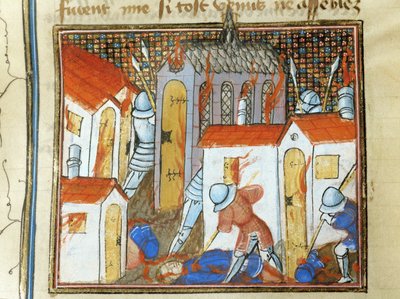 furent mie si tost venus ne assemblez